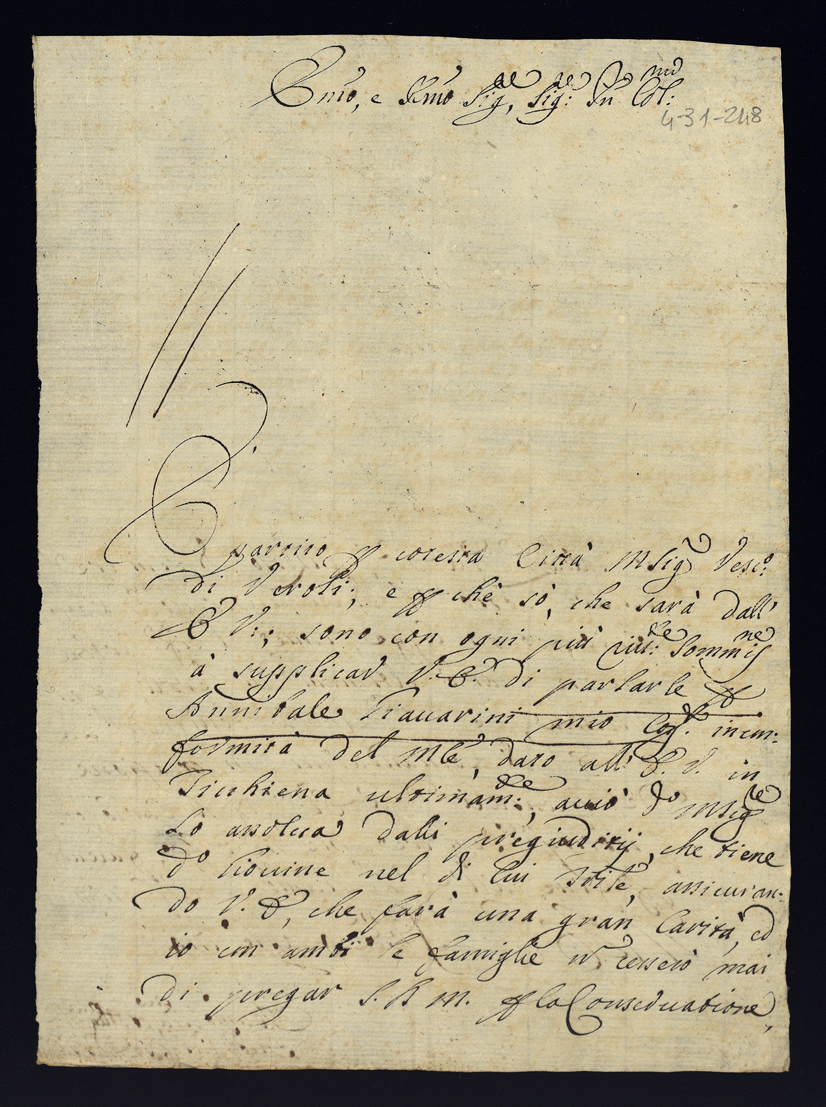 Emõ, e Rmõ Sig.re, Sig.re Pn Col.mo
431-248
È partito p cotesta Città Msig.r Vesc.o
di Veroli, e p che sò, che sarà dall'
E V.; sono con ogni più viu: Sommis.ne
à supplicar V. E. di parlarle p
Annibale Piauarini mio Cog.o incon:
formità del Mẽ dato all' E. V. in
Ticchiena ultimam.te, acciò d.o Msig.re
Lo assolua dalli pregiuditij, che tiene
d.o Giouine nel di lui Trile, assicuran:
do V. E., che farà una gran Carità, ed
io con ambi le famiglie ñ cesserò mai
di pregar S. D. M. p la Conseruatione,